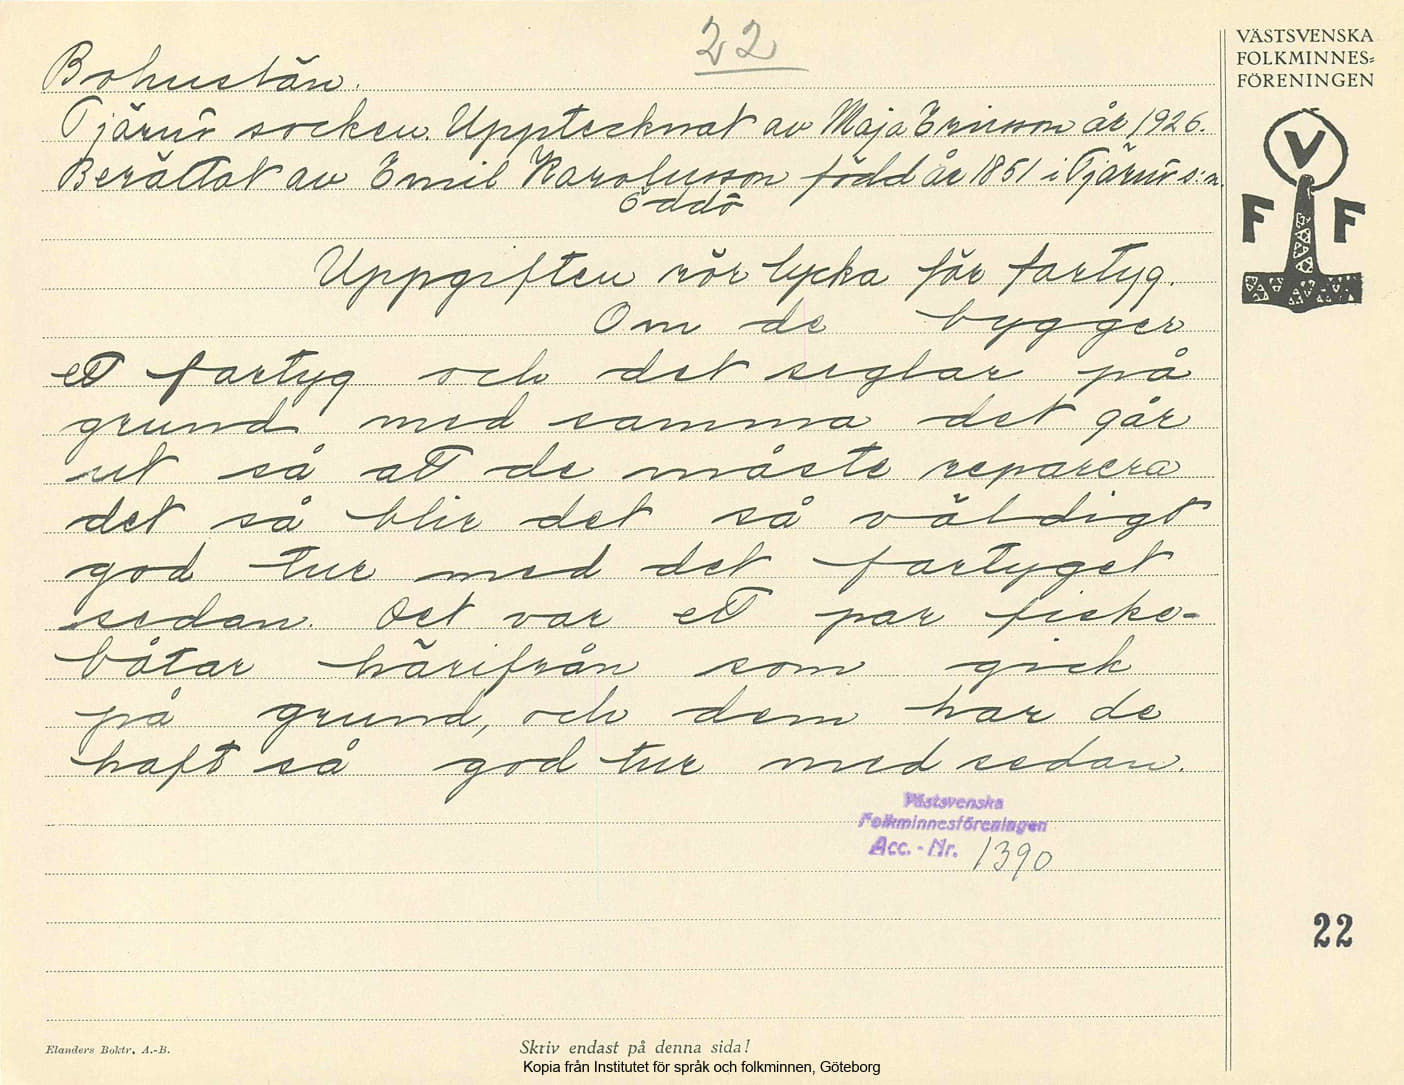 22
VÄSTSVENSKA
FOLKMINNES=
FÖRENINGEN
V
F F
Bohuslän.
Tjärnö socken. Upptecknat av Maja Ericson år 1926.
Berättat av Emil Karolusson född år 1851 i Tjärnö s:n.
Öddö
Uppgiften rör lycka för fartyg.
Om de bygger
ett fartyg och det seglar på
grund med samma det går
ut så att de måste reparera
det så blir det så väldigt
god tur med det fartyget
sedan. Det var ett par fiske-
båtar härifrån som gick
på grund, och dem har de
haft så god tur med sedan.
Västsvenska
Folkminnesföreningen
Acc.-Nr. 1390
22
Elanders Boktr. A.-B.
Skriv endast på denna sida!
Kopia från Institutet för språk och folkminnen, Göteborg